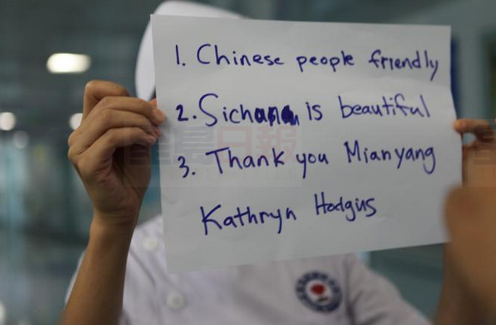 1. Chinese people friendly
2. Sichuana is beautiful
3. Thank you Mianyang
Kathryn Hodgus